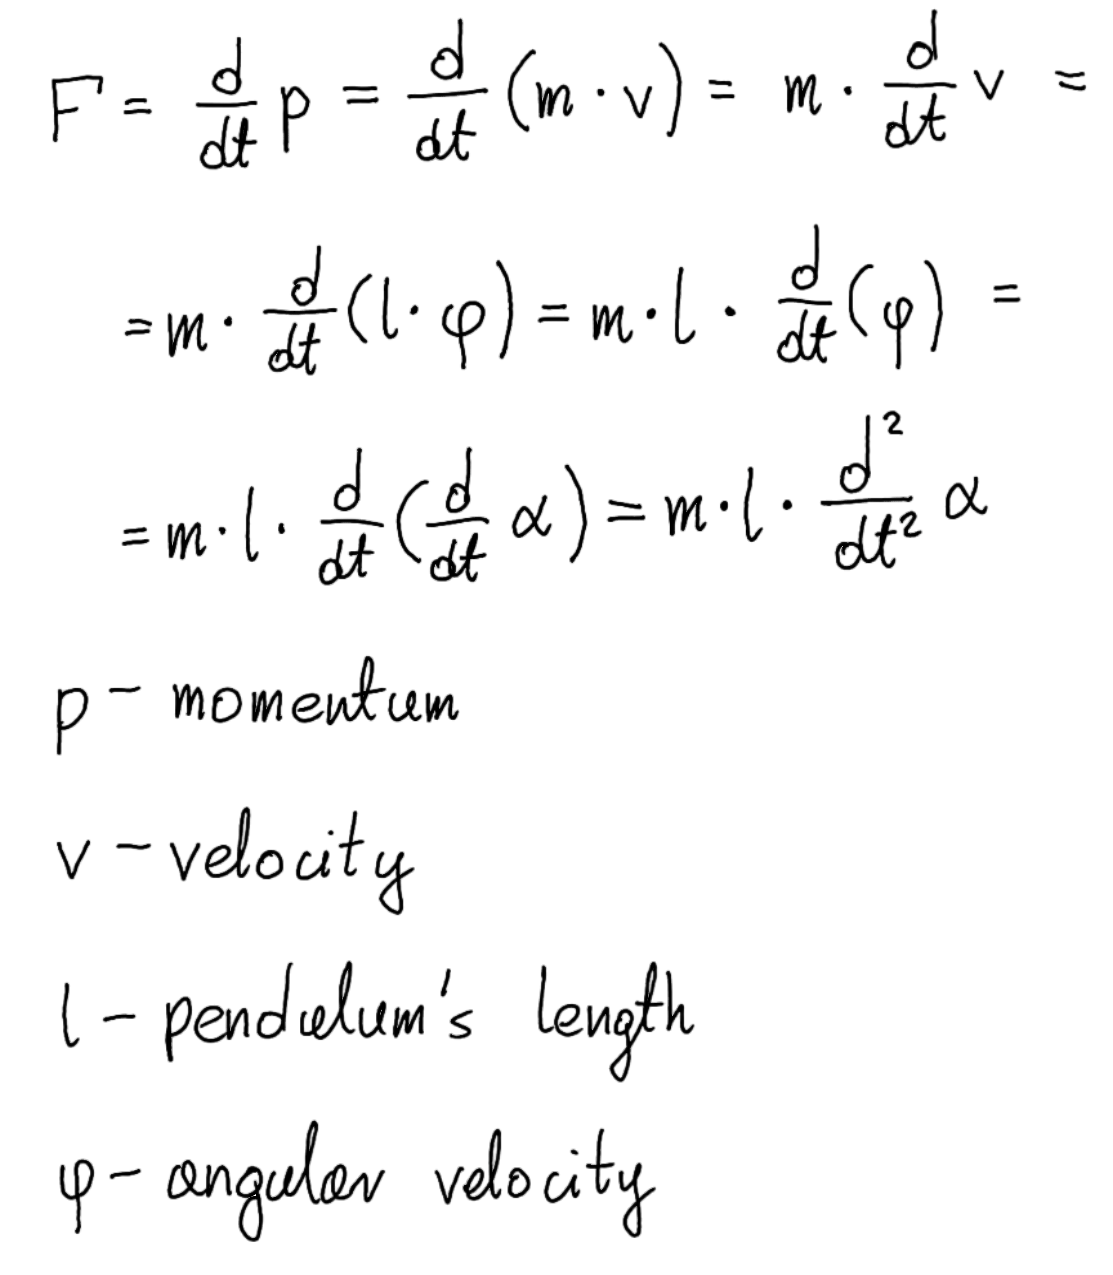 F = d/dt p = d/dt (m · v) = m · d/dt v =
= m · d/dt (l · φ) = m · l · d/dt (φ) =
= m · l · d/dt (d/dt α) = m · l · d²/dt² α
p – momentum
v – velocity
l – pendulum's length
φ – angular velocity